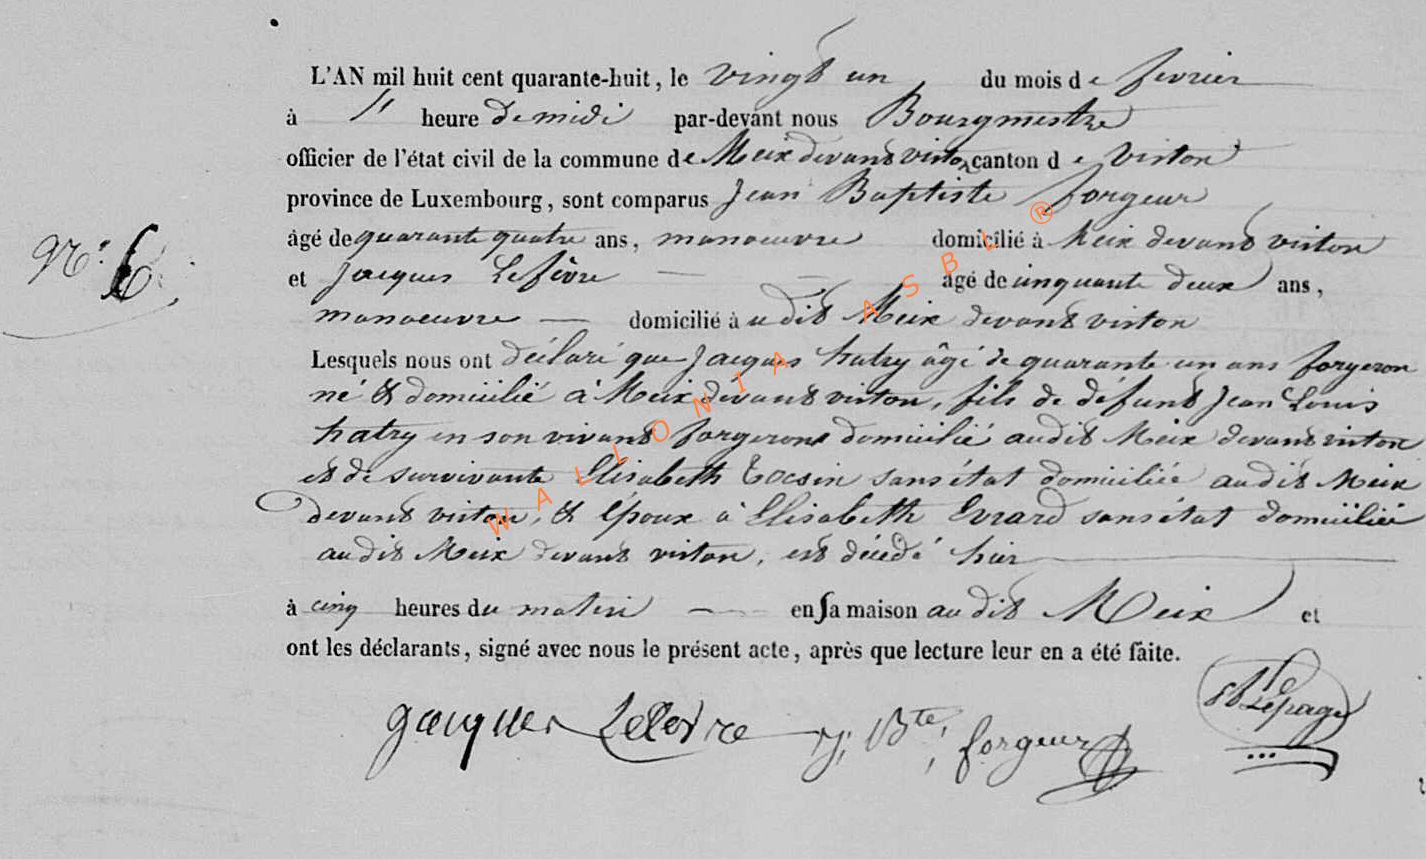 L'AN mil huit cent quarante-huit, le vingt un du mois de fevrier
à 11 heure De midi par-devant nous Bourgmestre
officier de l'état civil de la commune de Meix devant virton canton de Virton
province de Luxembourg, sont comparus Jean Baptiste forgeur
âgé de quarante quatre ans, manoeuvre domicilié à Meix devant virton
N.° 6.
et Jacques Lefèvre âgé de cinquante deux ans,
manoeuvre domicilié à udit Meix devant virton
Lesquels nous ont déclaré que Jacques hatry âgé de quarante un ans forgeron
né et domicilié à Meix devant virton, fils de défunt Jean Louis
hatry en son vivant forgeron domicilié audit Meix devant virton
et de survivante Elisabeth Tocsin sans état domiciliée audit Meix
devant virton, et époux à Elisabeth Evrard sans état domiciliée
audit Meix devant virton, est décédé hier
à cinq heures du matin en sa maison audit Meix et
ont les déclarants, signé avec nous le présent acte, après que lecture leur en a été faite.
Jacques Lefevre J, Bte, forgeur Lepage
WALLONIA ASBL ®